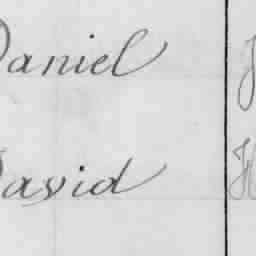 Daniel
David